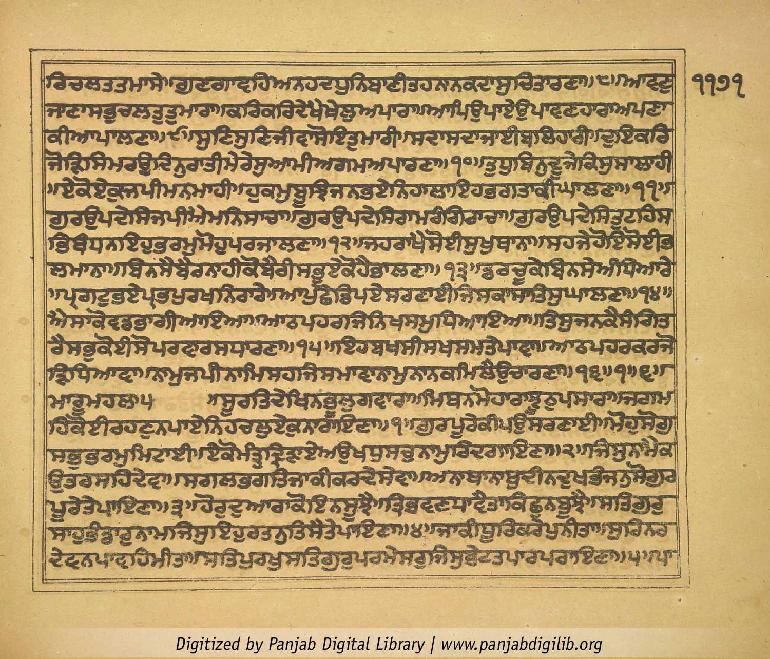 ਰਿਚਲਤਤਮਾਸੇ॥ਗੁਣਗਾਵਹਿਅਨਹਦਧੁਨਿਬਾਣੀਤਹਨਾਨਕਦਾਸੁਚਿਤਾਰਣਾ॥੮॥ਆਵਣੁ ੧੧੭੧
ਜਾਣਾਸਭੁਚਲਤੁਤੁਮਾਰਾ॥ਕਰਿਕਰਿਦੇਖੈਖੇਲੁਅਪਾਰਾ॥ਆਪਿਉਪਾਏਉਪਾਵਣਹਾਰਾਅਪਣਾ
ਕੀਆਪਾਲਣਾ॥੯॥ਸੁਣਿਸੁਣਿਜੀਵਾਸੋਇਤੁਮਾਰੀ॥ਸਦਾਸਦਾਜਾਈਬਲਿਹਾਰੀ॥ਦੁਇਕਰਿ
ਜੋੜਿਸਿਮਰਉਦਿਨੁਰਾਤੀਮੇਰੇਸੁਆਮੀਅਗਮਅਪਾਰਣਾ॥੧੦॥ਤੁਧੁਬਿਨੁਦੂਜੇਕਿਸੁਸਾਲਾਹੀ
॥ਏਕੋਏਕੁਜਪੀਮਨਮਾਹੀ॥ਹੁਕਮੁਬੂਝਿਜਨਭਏਨਿਹਾਲਾਇਹਭਗਤਾਕੀਘਾਲਣਾ॥੧੧॥
ਗੁਰਉਪਦੇਸਿਜਪੀਐਮਨਿਸਾਚਾ॥ਗੁਰਉਪਦੇਸਿਰਾਮਰੰਗਿਰਾਚਾ॥ਗੁਰਉਪਦੇਸਿਤੁਟਹਿਸ
ਭਿਬੰਧਨਇਹੁਭਰਮੁਮੋਹੁਪਰਜਾਲਣਾ॥੧੨॥ਜਹਰਾਖੈਸੋਈਸੁਖੁਥਾਨਾ॥ਸਹਜੇਹੋਇਸੋਈਭ
ਲਮਾਨਾ॥ਬਿਨਸੇਬੈਰਨਾਹੀਕੋਬੈਰੀਸਭੁਏਕੋਹੈਭਾਲਣਾ॥੧੩॥ਡਰਚੂਕੇਬਿਨਸੇਅੰਧਿਆਰੇ
॥ਪ੍ਰਗਟਭਏਪ੍ਰਭਪੁਰਖਨਿਰਾਰੇ॥ਆਪੁਛੋਡਿਪਏਸਰਣਾਈਜਿਸਕਾਸਾਤਿਸੁਘਾਲਣਾ॥੧੪॥
ਐਸਾਕੋਵਡਭਾਗੀਆਇਆ॥ਆਠਪਹਰਜਿਨਿਖਸਮੁਧਿਆਇਆ॥ਤਿਸੁਜਨਕੈਸੰਗਿਤ
ਰੈਸਭੁਕੋਈਸੋਪਰਵਾਰਸਧਾਰਣਾ॥੧੫॥ਇਹਬਖਸੀਸਖਸਮਤੇਪਾਵਾ॥ਆਠਪਹਰਕਰਜੋ
ੜਿਧਿਆਵਾ॥ਨਾਮੁਜਪੀਨਾਮਿਸਹਜਿਸਮਾਵਾਨਾਮੁਨਾਨਕਮਿਲੈਉਚਾਰਣਾ॥੧੬॥੧॥੬॥
ਮਾਰੂਮਹਲਾ੫ ॥ਸੂਰਤਿਦੇਖਿਨਭੂਲੁਗਵਾਰਾ॥ਮਿਥਨਮੋਹਾਰਾਝੂਠੁਪਸਾਰਾ॥ਜਗਮ
ਹਿਕੋਈਰਹਣੁਨਪਾਏਨਿਹਚਲੁਏਕੁਨਾਰਾਇਣਾ॥੧॥ਗੁਰਪੂਰੇਕੀਪਉਸਰਣਾਈ॥ਮੋਹੁਸੋਗੁ
ਸਭੁਭਰਮੁਮਿਟਾਈ॥ਏਕੋਮੰਤ੍ਰੁਦ੍ਰਿੜਾਏਅਉਖਧੁਸਚੁਨਾਮੁਰਿਦਗਾਇਣਾ॥੨॥ਜਿਸੁਨਾਮੈਕ
ਉਤਰਸਹਿਦੇਵਾ॥ਸਗਲਭਗਤਿਜਾਕੀਕਰਦੇਸੇਵਾ॥ਅਨਾਥਾਨਾਥੁਦੀਨਦੁਖਭੰਜਨੁਸੋਗੁਰ
ਪੂਰੇਤੇਪਾਇਣਾ॥੩॥ਹੋਰੁਦੁਆਰਾਕੋਇਨਸੂਝੈ॥ਤ੍ਰਿਭਵਣਧਾਵੈਤਾਕਿਛੂਨਬੂਝੈ॥ਸਤਿਗੁਰੁ
ਸਾਹੁਭੰਡਾਰੁਨਾਮਜਿਸੁਇਹੁਰਤਨੁਤਿਸੈਤੇਪਾਇਣਾ॥੪॥ਜਾਕੀਧੂਰਿਕਰੇਪੁਨੀਤਾ॥ਸੁਰਿਨਰ
ਦੇਵਨਪਾਵਹਿਮੀਤਾ॥ਸਤਿਪੁਰਖੁਸਤਿਗੁਰੁਪਰਮੇਸਰੁਜਿਸੁਭੇਟਤਪਾਰਪਰਾਇਣਾ॥੫॥ਪਾ
Digitized by Panjab Digital Library | www.panjabdigilib.org